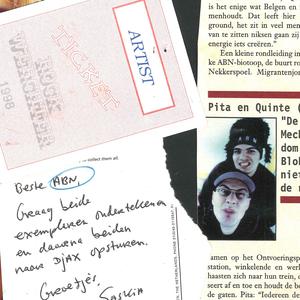 ARTIST
TICKET
ROCK
WERCHTER
1998
collect them all.
Beste ABN,
Graag beide
exemplaren ondertekenen
en daarna beiden
naar DJAX opsturen.
Groetjes,
Saskia
is het enige wat Belgen en
menhoudt. Dat leeft hier
ground, het zit in veel men
van te zitten niksen gaan zij
energie iets creëren."
Een kleine rondleiding in
ke ABN-biotoop, de buurt ro
Nekkerspoel. Migrantenjon
Pita en Quinte (
"De
Mech
dom
Blok
niet
de r
amen op het Ontvoeringsp
station, winkelende en werk
haasten zich naar hun trein, d
seert af en toe en houdt de b
de gaten. Pita: "Iedereen d